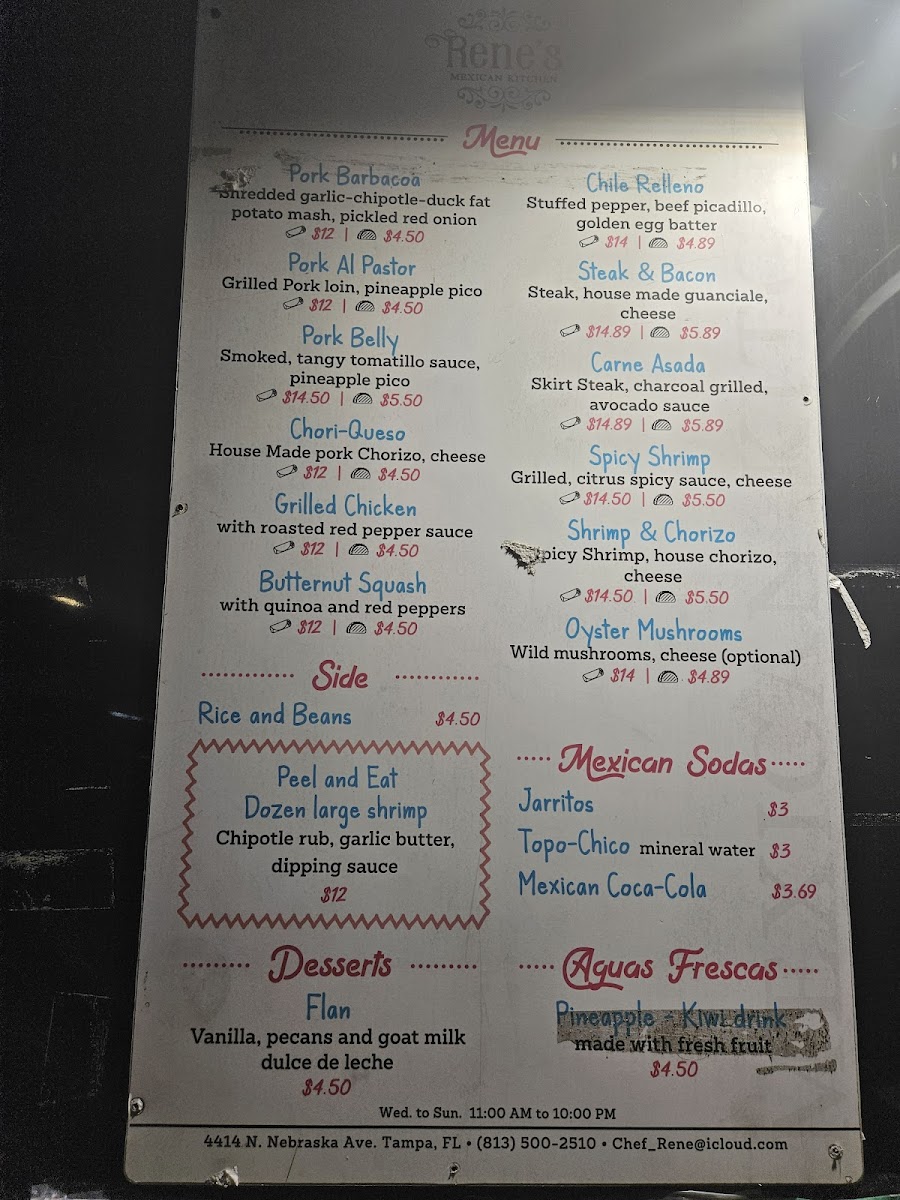 Rene's
MEXICAN KITCHEN
Menu
Pork Barbacoa
Shredded garlic-chipotle-duck fat
potato mash, pickled red onion
$12 | $4.50
Pork Al Pastor
Grilled Pork loin, pineapple pico
$12 | $4.50
Pork Belly
Smoked, tangy tomatillo sauce,
pineapple pico
$14.50 | $5.50
Chori-Queso
House Made pork Chorizo, cheese
$12 | $4.50
Grilled Chicken
with roasted red pepper sauce
$12 | $4.50
Butternut Squash
with quinoa and red peppers
$12 | $4.50
Side
Rice and Beans $4.50
Peel and Eat
Dozen large shrimp
Chipotle rub, garlic butter,
dipping sauce
$12
Desserts
Flan
Vanilla, pecans and goat milk
dulce de leche
$4.50
Chile Relleno
Stuffed pepper, beef picadillo,
golden egg batter
$14 | $4.89
Steak & Bacon
Steak, house made guanciale,
cheese
$14.89 | $5.89
Carne Asada
Skirt Steak, charcoal grilled,
avocado sauce
$14.89 | $5.89
Spicy Shrimp
Grilled, citrus spicy sauce, cheese
$14.50 | $5.50
Shrimp & Chorizo
picy Shrimp, house chorizo,
cheese
$14.50 | $5.50
Oyster Mushrooms
Wild mushrooms, cheese (optional)
$14 | $4.89
Mexican Sodas
Jarritos $3
Topo-Chico mineral water $3
Mexican Coca-Cola $3.69
Aguas Frescas
Pineapple - Kiwi drink
made with fresh fruit
$4.50
Wed. to Sun. 11:00 AM to 10:00 PM
4414 N. Nebraska Ave. Tampa, FL • (813) 500-2510 • Chef_Rene@icloud.com